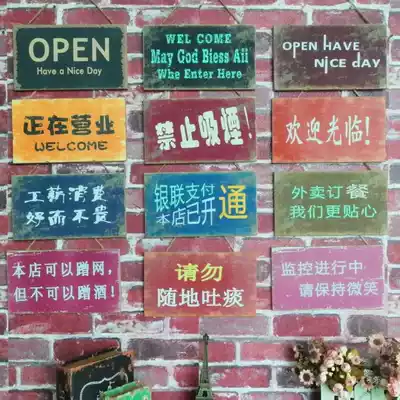 OPEN
Have a Nice Day
WEL COME
May God Bless All
Who Enter Here
OPEN HAVE
NICE DAY
正在营业
WELCOME
禁止吸煙!
欢迎光临!
工薪消费
好而不贵
银联支付
本店已开
通
外卖订餐
我们更贴心
本店可以蹭网,
但不可以蹭酒!
请勿
随地吐痰
监控进行中
请保持微笑